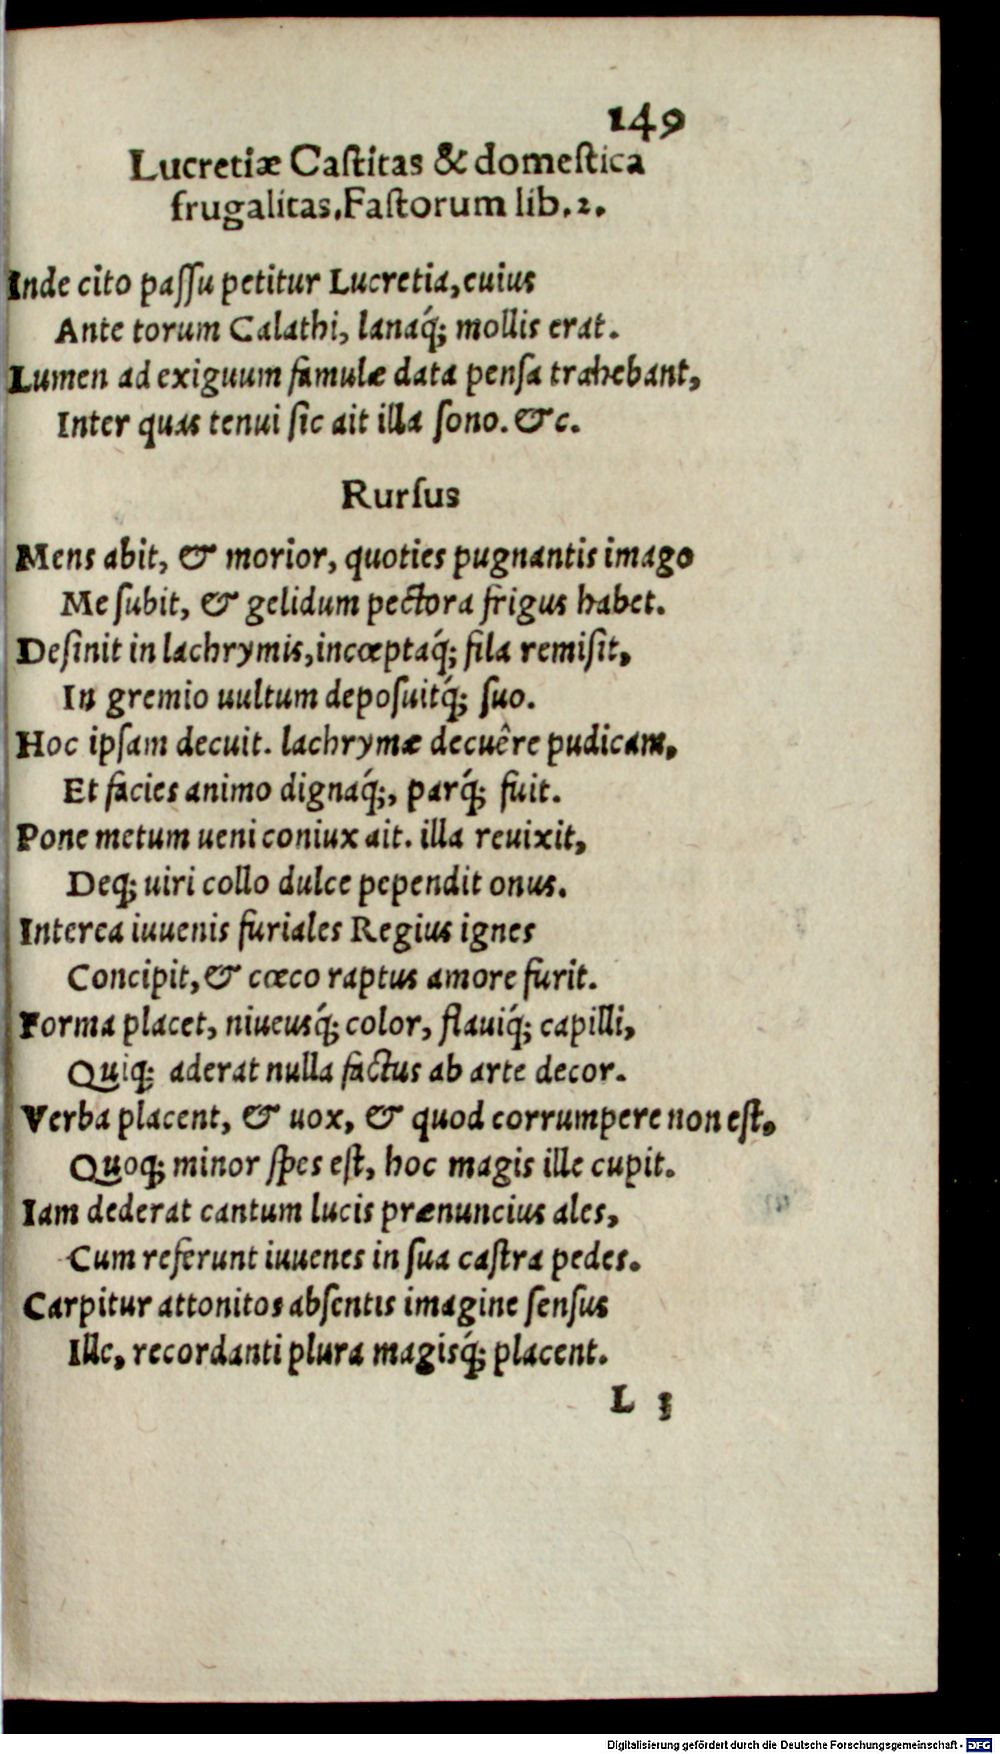 149
Lucretiæ Caſtitas & domeſtica
frugalitas. Faſtorum lib. 2.
Inde cito paſſu petitur Lucretia, cuius
Ante torum Calathi, lanaq́; mollis erat.
Lumen ad exiguum famulæ data penſa trahebant,
Inter quas tenui ſic ait illa ſono. &c.
Rurſus
Mens abit, & morior, quoties pugnantis imago
Me ſubit, & gelidum pectora frigus habet.
Deſinit in lachrymis, incœptaq́; fila remiſit,
In gremio uultum depoſuitq́; ſuo.
Hoc ipſam decuit. lachrymæ decuêre pudicam,
Et facies animo dignaq́;, parq́; fuit.
Pone metum ueni coniux ait. illa reuixit,
Deq; uiri collo dulce pependit onus.
Interea iuuenis furiales Regius ignes
Concipit, & cœco raptus amore furit.
Forma placet, niueusq́; color, flauiq́; capilli,
Quiq; aderat nulla factus ab arte decor.
Verba placent, & uox, & quod corrumpere non eſt,
Quoq; minor ſpes eſt, hoc magis ille cupit.
Iam dederat cantum lucis prænuncius ales,
Cum referunt iuuenes in ſua caſtra pedes.
Carpitur attonitos abſentis imagine ſenſus
Ille, recordanti plura magisq́; placent.
L 3
Digitalisierung gefördert durch die Deutsche Forschungsgemeinschaft - DFG